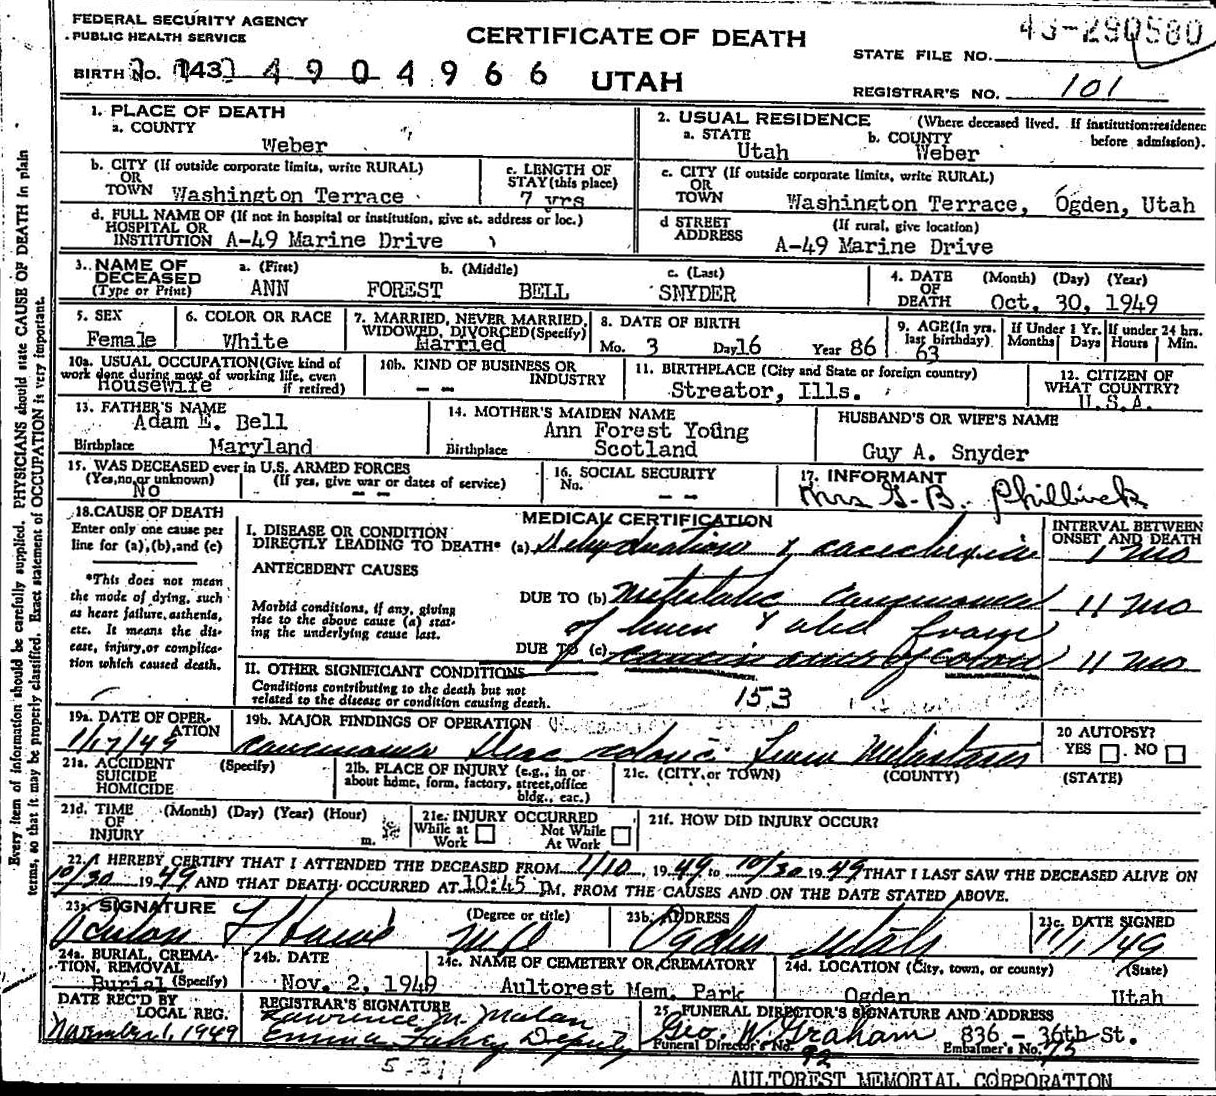 FEDERAL SECURITY AGENCY
PUBLIC HEALTH SERVICE
CERTIFICATE OF DEATH
STATE FILE NO.
BIRTH NO. 143 4904966
UTAH
REGISTRAR'S NO. 101
Every item of information should be carefully supplied. PHYSICIANS should state CAUSE OF DEATH in plain
terms, so that it may be properly classified. Exact statement of OCCUPATION is very important.
1. PLACE OF DEATH
a. COUNTY
Weber
2. USUAL RESIDENCE (Where deceased lived. If institution:residence
before admission).
a. STATE b. COUNTY
Utah Weber
b. CITY (If outside corporate limits, write RURAL)
OR
TOWN Washington Terrace
c. LENGTH OF
STAY(this place)
7 yrs
c. CITY (If outside corporate limits, write RURAL)
OR
TOWN Washington Terrace, Ogden, Utah
d. FULL NAME OF (If not in hospital or institution, give st. address or loc.)
HOSPITAL OR
INSTITUTION A-49 Marine Drive
d STREET (If rural, give location)
ADDRESS A-49 Marine Drive
3. NAME OF
DECEASED
(Type or Print)
a. (First) b. (Middle) c. (Last)
ANN FOREST BELL SNYDER
4. DATE (Month) (Day) (Year)
OF
DEATH Oct. 30, 1949
5. SEX
Female
6. COLOR OR RACE
White
7. MARRIED, NEVER MARRIED,
WIDOWED, DIVORCED(Specify)
Married
8. DATE OF BIRTH
Mo. 3 Day 16 Year 86
9. AGE(In yrs.
last birthday)
63
If Under 1 Yr.
Months Days
If under 24 hrs.
Hours Min.
10a. USUAL OCCUPATION(Give kind of
work done during most of working life, even
if retired)
Housewife
10b. KIND OF BUSINESS OR
INDUSTRY
- -
11. BIRTHPLACE (City and State or foreign country)
Streator, Ills.
12. CITIZEN OF
WHAT COUNTRY?
U.S.A.
13. FATHER'S NAME
Adam E. Bell
Birthplace Maryland
14. MOTHER'S MAIDEN NAME
Ann Forest Young
Birthplace Scotland
HUSBAND'S OR WIFE'S NAME
Guy A. Snyder
15. WAS DECEASED ever in U.S. ARMED FORCES
(Yes,no,or unknown) (If yes, give war or dates of service)
No - -
16. SOCIAL SECURITY
No. - -
17. INFORMANT
Mrs G. B.
18. CAUSE OF DEATH
Enter only one cause per
line for (a),(b),and (c)
*This does not mean
the mode of dying, such
as heart failure, asthenia,
etc. It means the dis-
ease, injury, or complica-
tion which caused death.
MEDICAL CERTIFICATION
INTERVAL BETWEEN
ONSET AND DEATH
I. DISEASE OR CONDITION
DIRECTLY LEADING TO DEATH* (a) Dehydration & 1 mo
ANTECEDENT CAUSES
Morbid conditions, if any, giving
rise to the above cause (a) stat-
ing the underlying cause last.
DUE TO (b) metastatic carcinoma 11 mo
of liver &
DUE TO (c) carcinoma of colon 11 mo
II. OTHER SIGNIFICANT CONDITIONS
Conditions contributing to the death but not
related to the disease or condition causing death.
153
19a. DATE OF OPER-
ATION
1/17/49
19b. MAJOR FINDINGS OF OPERATION
carcinoma colonic liver metastases
20 AUTOPSY?
YES NO
21a. ACCIDENT (Specify)
SUICIDE
HOMICIDE
21b. PLACE OF INJURY (e.g., in or
about home, form, factory, street,office
bldg., eac.)
21c. (CITY, or TOWN) (COUNTY) (STATE)
21d. TIME (Month) (Day) (Year) (Hour)
OF
INJURY m.
21e. INJURY OCCURRED
While at Not While
Work At Work
21f. HOW DID INJURY OCCUR?
22. I HEREBY CERTIFY THAT I ATTENDED THE DECEASED FROM 1/10, 1949 to 10/30 1949 THAT I LAST SAW THE DECEASED ALIVE ON
10/30 1949 AND THAT DEATH OCCURRED AT 10:45 M, FROM THE CAUSES AND ON THE DATE STATED ABOVE.
23a. SIGNATURE (Degree or title)
MD
23b. ADDRESS
Ogden Utah
23c. DATE SIGNED
11/1/49
24a. BURIAL, CREMA-
TION, REMOVAL
Burial (Specify)
24b. DATE
Nov. 2, 1949
24c. NAME OF CEMETERY OR CREMATORY
Aultorest Mem. Park
24d. LOCATION (City, town, or county) (State)
Ogden Utah
DATE REC'D BY
LOCAL REG.
November 1, 1949
REGISTRAR'S SIGNATURE
Lawrence M. Malan
Emma Deputy
25. FUNERAL DIRECTOR'S SIGNATURE AND ADDRESS
Geo. W. Graham 836 - 36th St.
Funeral Director's No. 92 Embalmer's No. 75
AULTOREST MEMORIAL CORPORATION